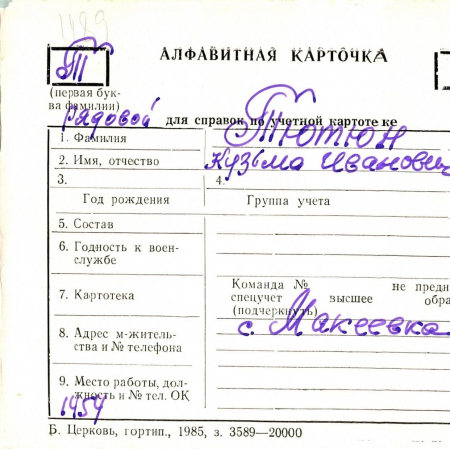 1499
Т
АЛФАВИТНАЯ КАРТОЧКА
(первая бук-
ва фамилии)
рядовой для справок по учетной картотеке
1. Фамилия Тютюн
2. Имя, отчество Кузьма Иванович
3. 4.
Год рождения Группа учета
5. Состав
6. Годность к воен-
службе
Команда № не предн
7. Картотека спецучет высшее обра
(подчеркнуть)
с. Макеевка
8. Адрес м-житель-
ства и № телефона
9. Место работы, дол-
жность и № тел. ОК
1454
Б. Церковь, гортип., 1985, з. 3589—20000